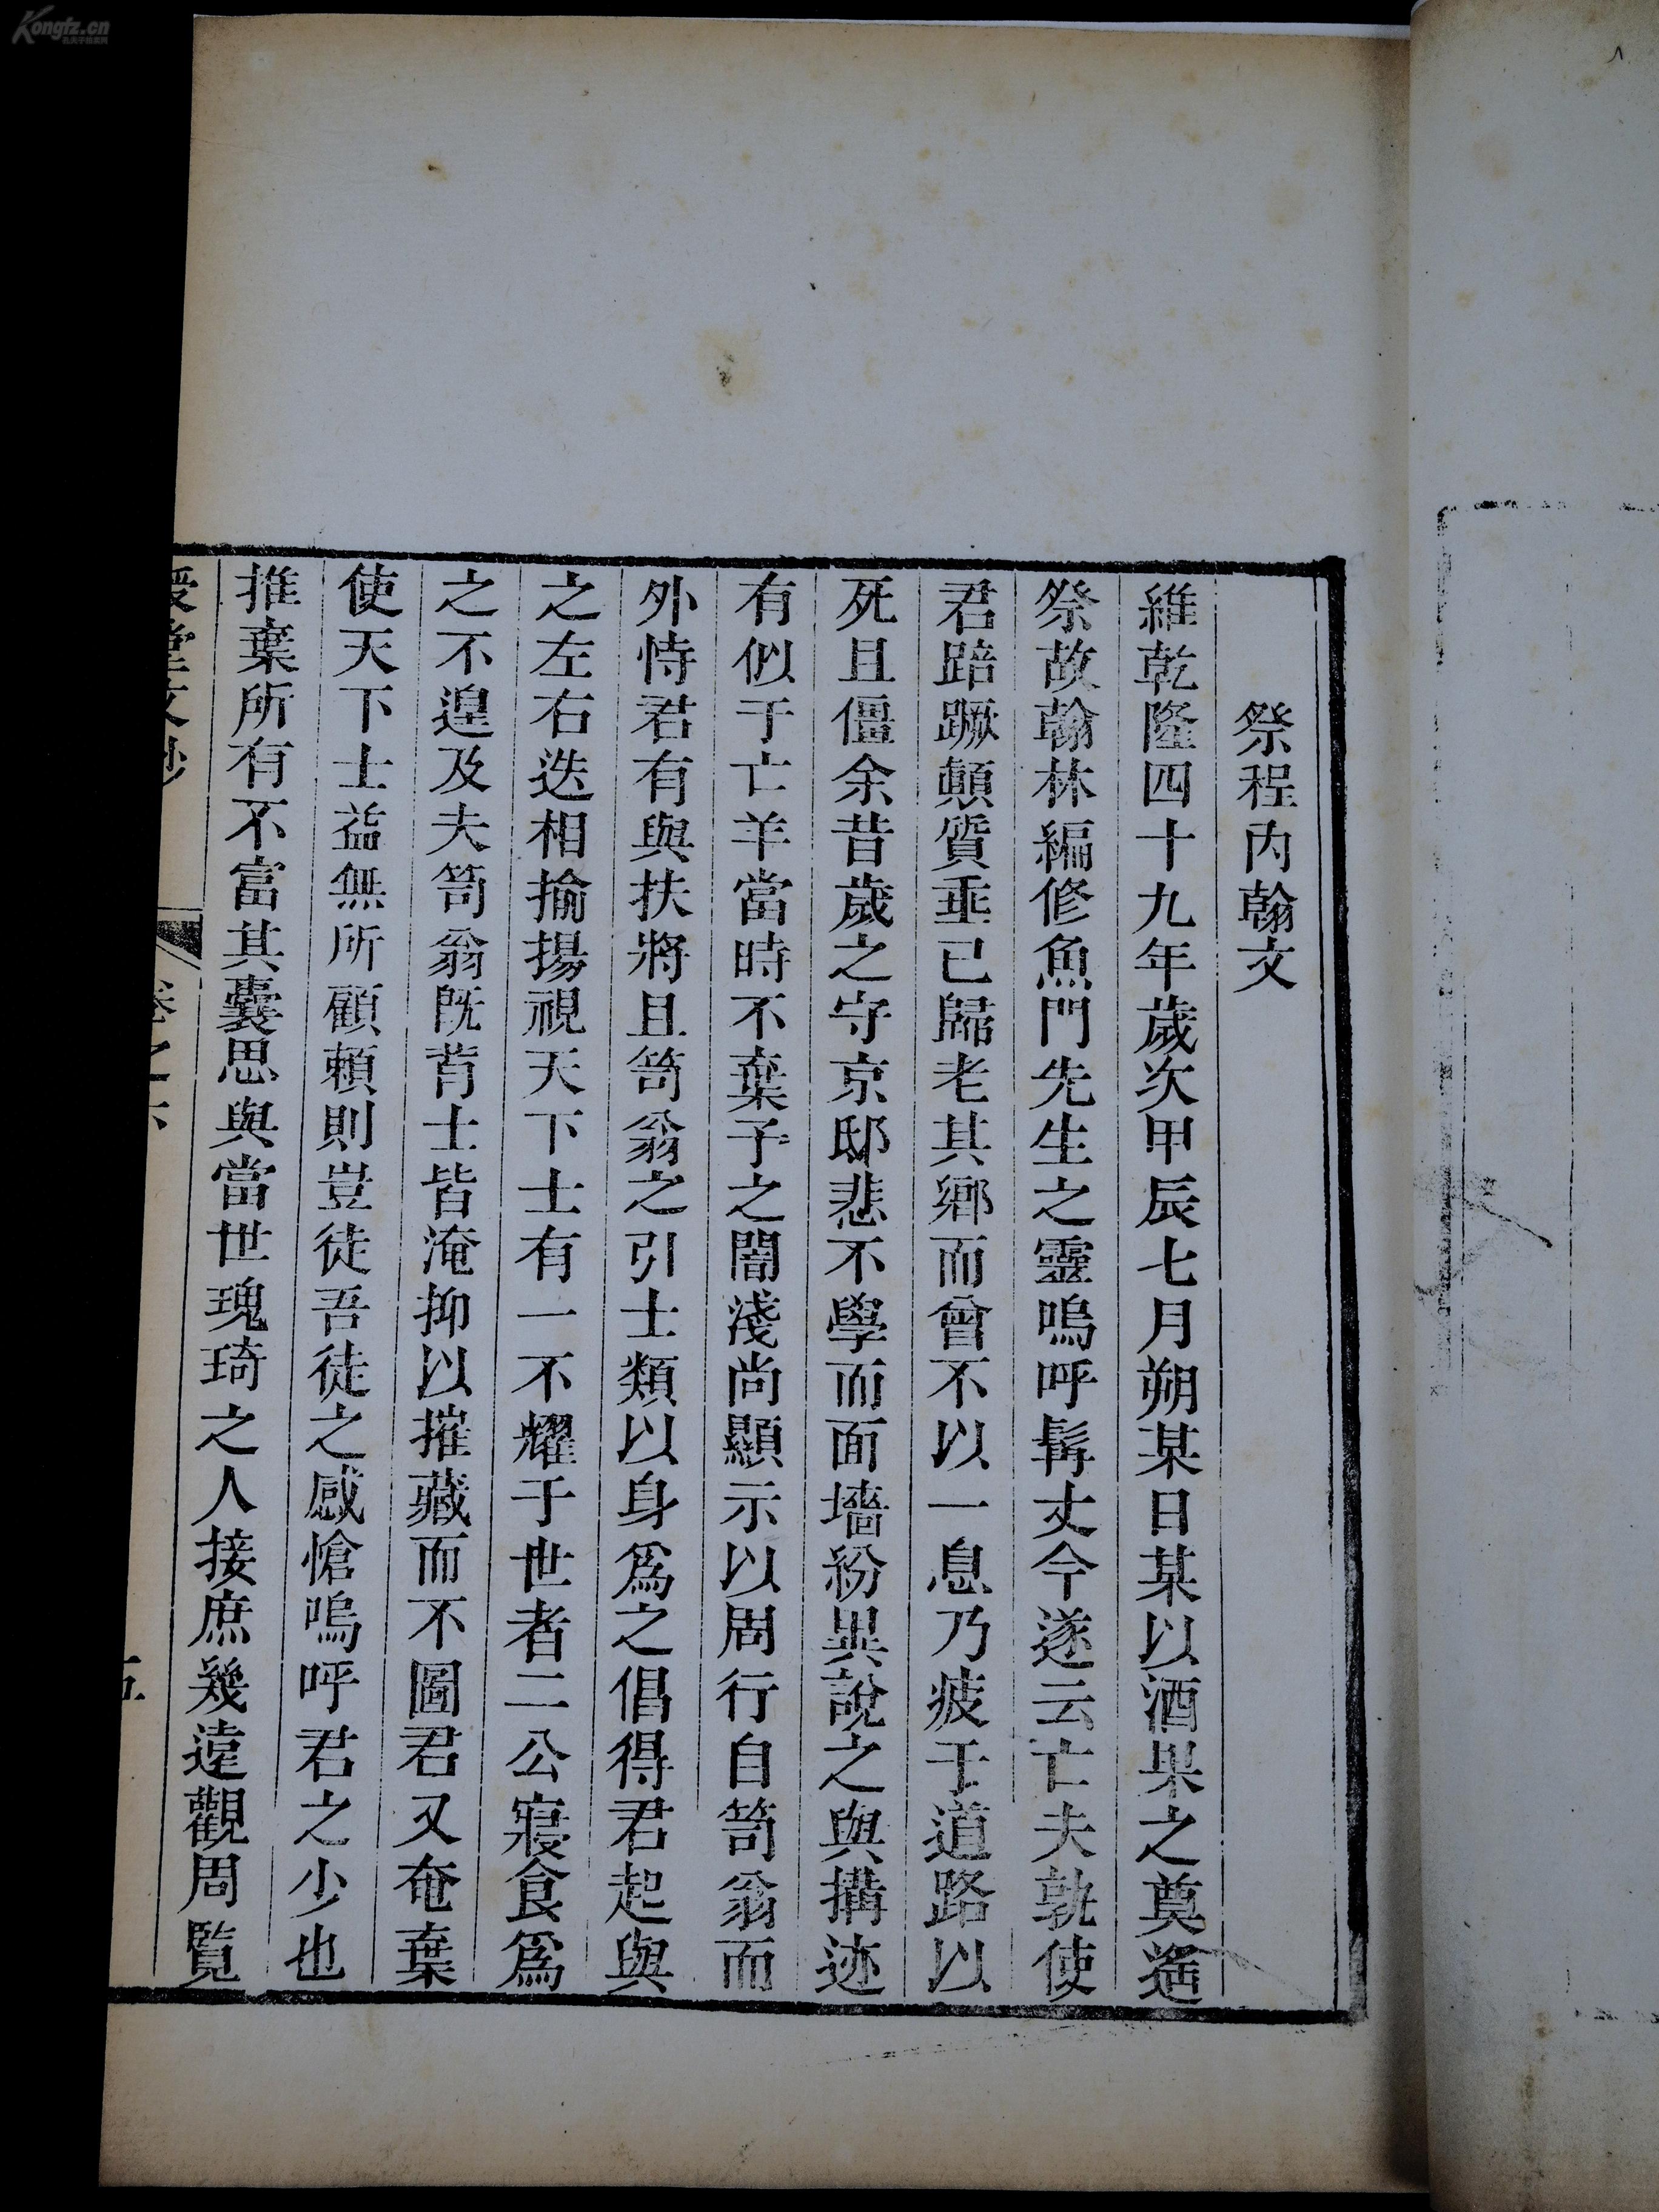 祭程內翰文
維乾隆四十九年歲次甲辰七月朔某日某以酒果之奠遙
祭故翰林編修魚門先生之靈嗚呼髯丈今遂云亡夫孰使
君踣蹶顛質垂已歸老其鄉而曾不以一息乃疲于道路以
死且僵余昔歲之守京邸悲不學而面墻紛異說之與搆迹
有似于亡羊當時不棄子之闇淺尚顯示以周行自笥翁而
外恃君有與扶將且笥翁之引士類以身為之倡得君起與
之左右迭相揄揚視天下士有一不耀于世者二公寢食為
之不遑及夫笥翁既背士皆淹抑以摧藏而不圖君又奄棄
使天下士益無所顧賴則豈徒吾徒之感愴嗚呼君之少也
推棄所有不富其囊思與當世瑰琦之人接庶幾遠觀周覽
授堂文鈔
卷之六
五
Kongfz.cn